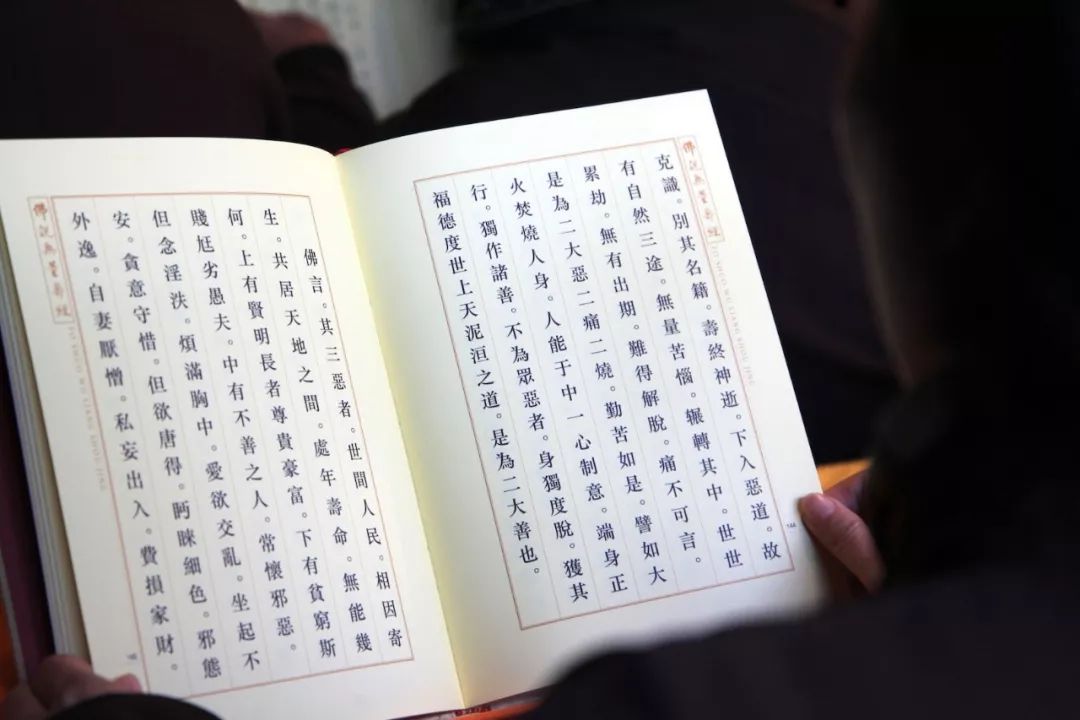 佛說無量壽經
FO SHUO WU LIANG SHOU JING
克識。別其名籍。壽終神逝。下入惡道。故
有自然三途。無量苦惱。輾轉其中。世世
累劫。無有出期。難得解脫。痛不可言。
是為二大惡二痛二燒。勤苦如是。譬如大
火焚燒人身。人能于中一心制意。端身正
行。獨作諸善。不為眾惡者。身獨度脫。獲其
福德度世上天泥洹之道。是為二大善也。
144
佛言。其三惡者。世間人民。相因寄
生。共居天地之間。處年壽命。無能幾
何。上有賢明長者尊貴豪富。下有貧窮斯
賤尪劣愚夫。中有不善之人。常懷邪惡。
但念淫泆。煩滿胸中。愛欲交亂。坐起不
安。貪意守惜。但欲唐得。眄睞細色。邪態
外逸。自妻厭憎。私妄出入。費損家財。
佛說無量壽經
FO SHUO WU LIANG SHOU JING